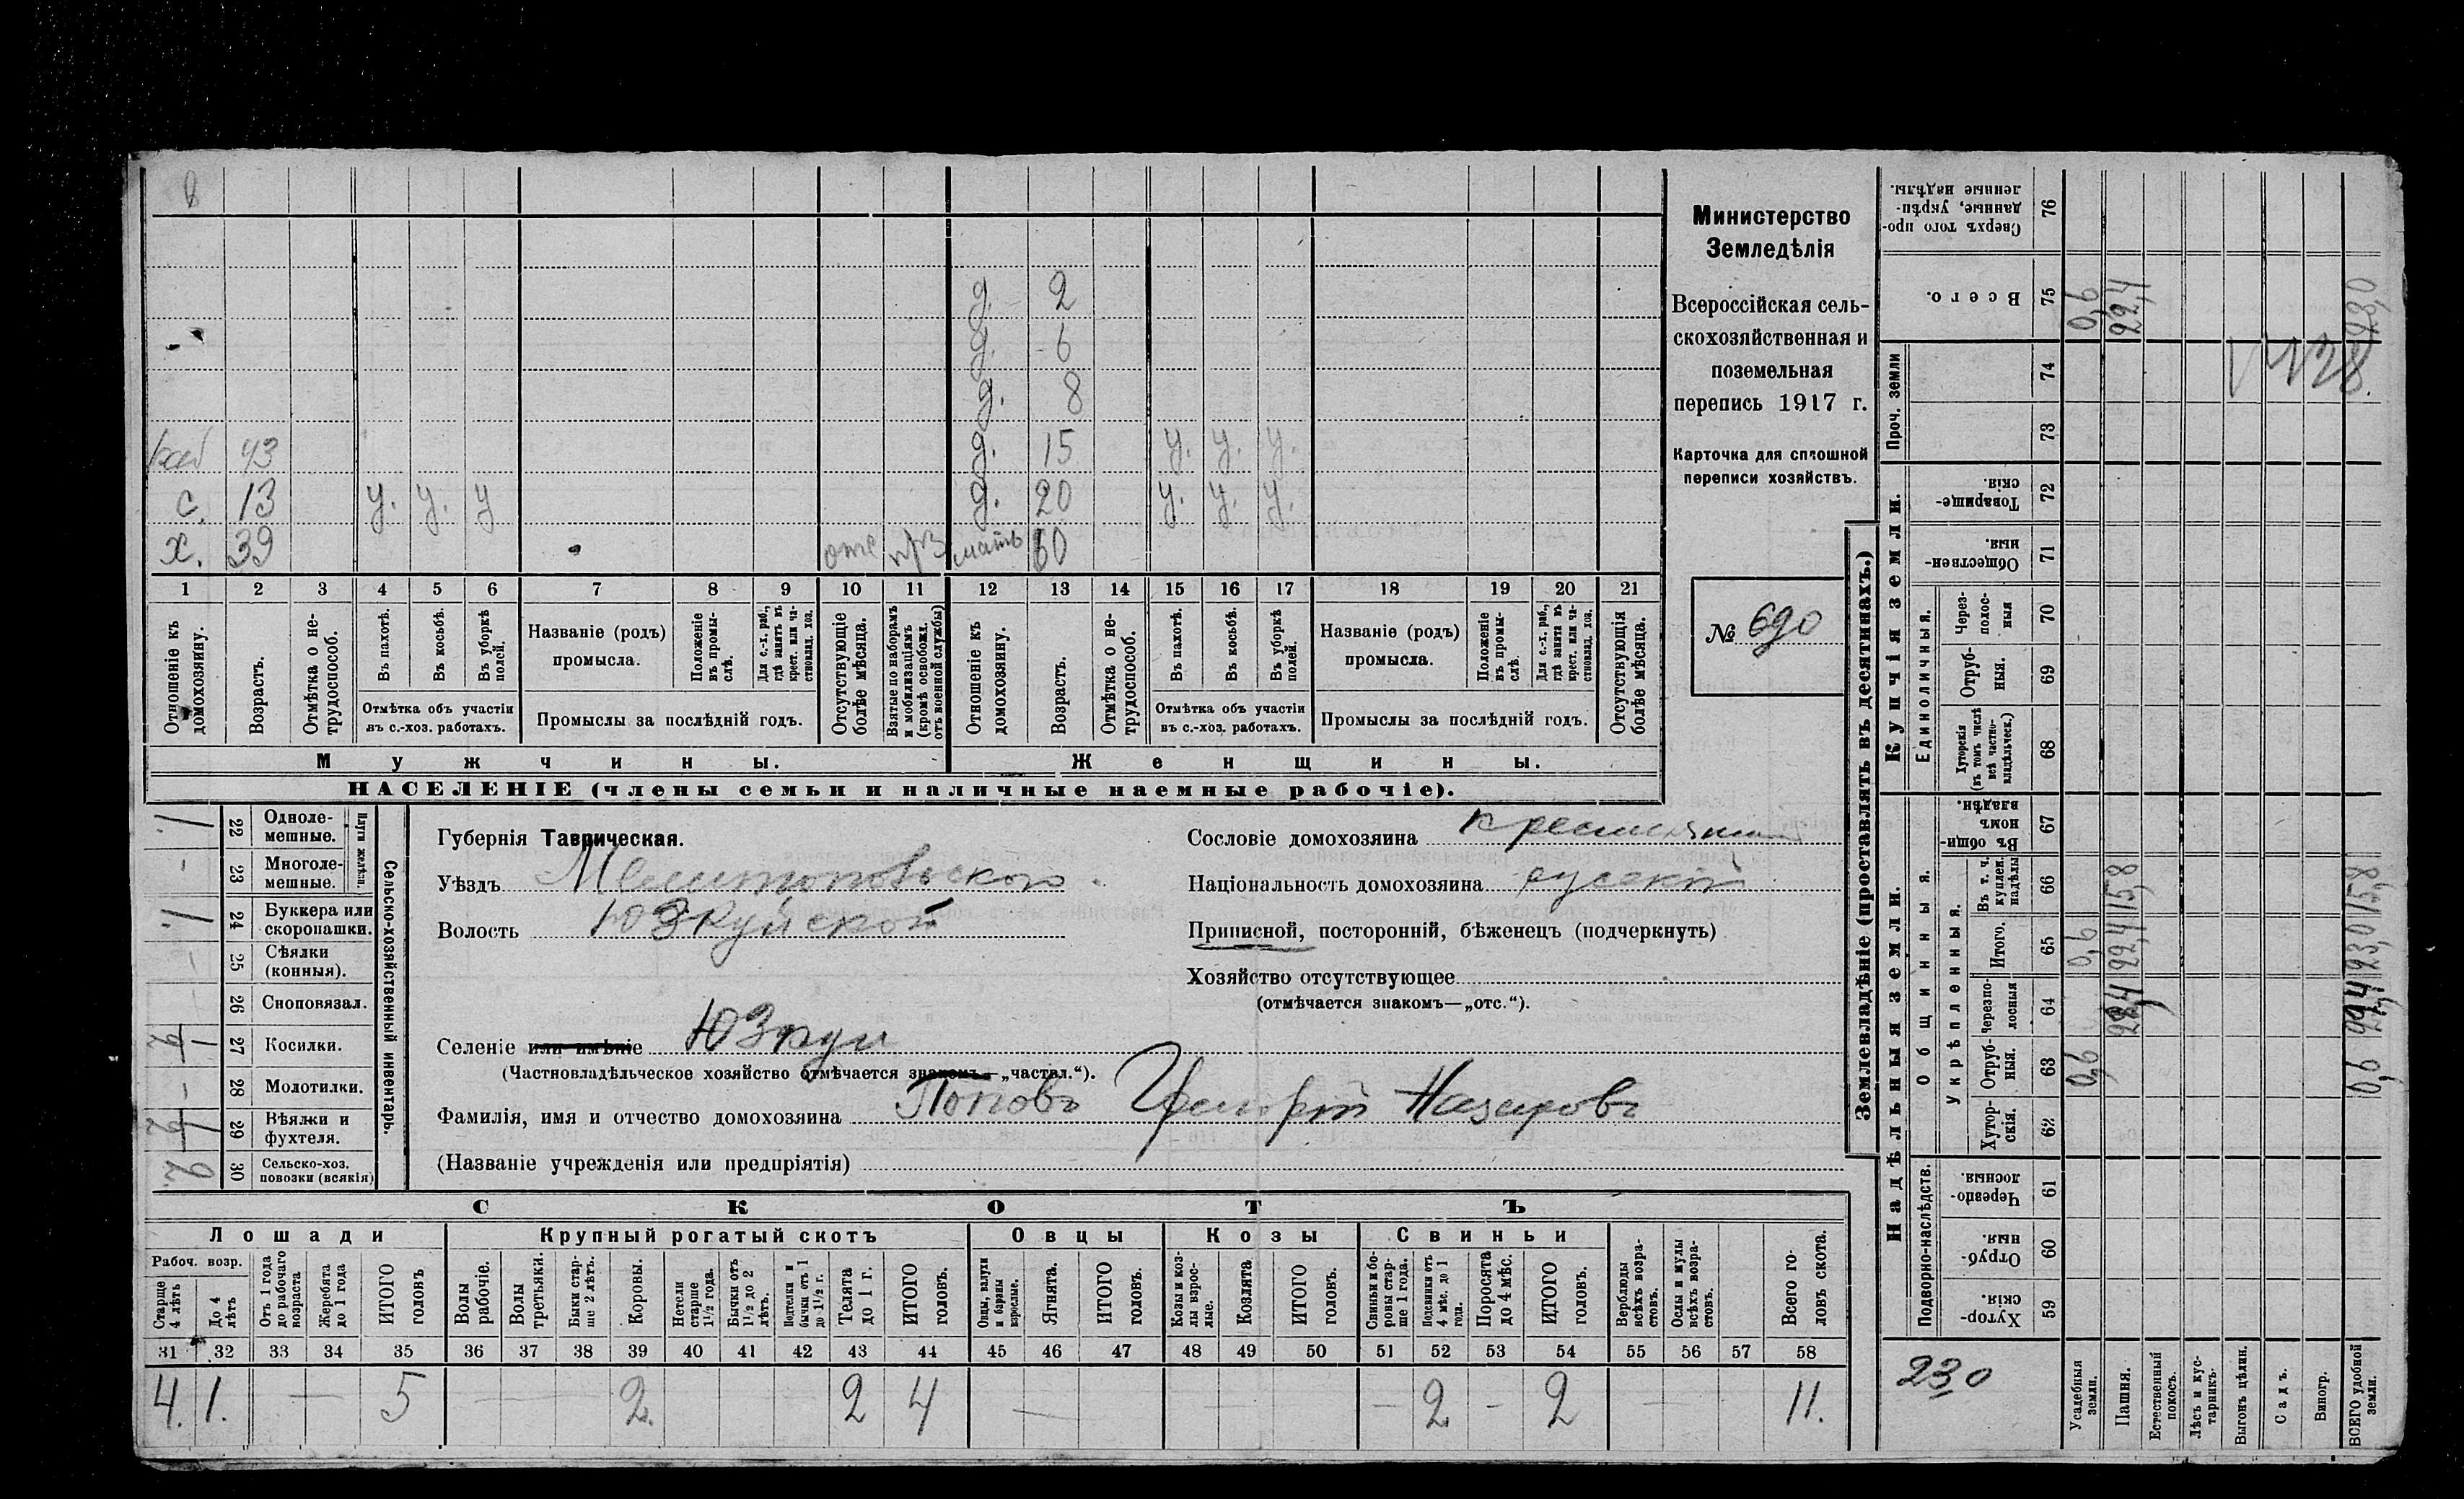 Министерство
Земледѣлія
Всероссійская сель-
скохозяйственная и
поземельная
перепись 1917 г.
Карточка для сплошной
переписи хозяйствъ.
№ 690
д. 2
д. 6
д. 8
раб 43 д. 15 у. у. у.
с. 13 у. у. у д. 20 у. у. у.
х. 39 отс мать 60
1 2 3 4 5 6 7 8 9 10 11 12 13 14 15 16 17 18 19 20 21
Отношеніе къ домохозяину.
Возрастъ.
Отмѣтка о не-трудоспособ.
Въ пахотѣ.
Въ косьбѣ.
Въ уборкѣ полей.
Отмѣтка объ участіи
въ с.-хоз. работахъ.
Названіе (родъ)
промысла.
Положеніе въ промы-слѣ.
Для с.-х. раб., гдѣ занятъ въ крест. или ча-стновлад. хоз.
Промыслы за послѣдній годъ.
Отсутствующіе болѣе мѣсяца.
Взятые по наборамъ и мобилизаціямъ (кромѣ освобожд. отъ военной службы)
Отношеніе къ домохозяину.
Возрастъ.
Отмѣтка о не-трудоспособ.
Въ пахотѣ.
Въ косьбѣ.
Въ уборкѣ полей.
Отмѣтка объ участіи
въ с.-хоз. работахъ.
Названіе (родъ)
промысла.
Положеніе въ промы-слѣ.
Для с.-х. раб., гдѣ занята въ крест. или ча-стновлад. хоз.
Промыслы за послѣдній годъ.
Отсутствующія болѣе мѣсяца.
Мужчины. Женщины.
НАСЕЛЕНІЕ (члены семьи и наличные наемные рабочіе).
Сельско-хозяйственный инвентарь.
Плуги желѣзн.
22 Одноле-мешные.
23 Многоле-мешные.
24 Буккера или скоропашки.
25 Сѣялки (конныя).
26 Сноповязал.
27 Косилки.
28 Молотилки.
29 Вѣялки и фухтеля.
30 Сельско-хоз. повозки (всякія)
Губернія Таврическая.
Уѣздъ Мелитопольскаго.
Волость Юзкуйской
Сословіе домохозяина крестьянин
Національность домохозяина русскій
Приписной, посторонній, бѣженецъ (подчеркнуть)
Хозяйство отсутствующее
(отмѣчается знакомъ—„отс.“).
Селеніе или имѣніе Юзкуи
(Частновладѣльческое хозяйство отмѣчается знакомъ—„частвл.“).
Фамилія, имя и отчество домохозяина Поповъ Григорій Назаровъ
(Названіе учрежденія или предпріятія)
СКОТЪ
Лошади Крупный рогатый скотъ Овцы Козы Свиньи
Рабоч. возр.
Старше 4 лѣтъ
До 4 лѣтъ
Отъ 1 года до рабочаго возраста
Жеребята до 1 года
ИТОГО головъ
Волы рабочіе.
Волы третьяки.
Быки стар-ше 2 лѣтъ.
Коровы.
Нетели старше 1½ года.
Бычки отъ 1½ до 2 лѣтъ.
Подтелки и бычки отъ 1 до 1½ г.
Телята до 1 г.
ИТОГО головъ.
Овцы, валухи и бараны взрослые.
Ягнята.
ИТОГО головъ.
Козы и коз-лы взрос-лые.
Козлята
ИТОГО головъ.
Свиньи и бо-ровы стар-ше 1 года.
Подсвинки отъ 4 мѣс. до 1 года.
Поросята до 4 мѣс.
ИТОГО головъ.
Верблюды всѣхъ возра-стовъ.
Ослы и мулы всѣхъ возра-стовъ.
Всего го-ловъ скота.
31 32 33 34 35 36 37 38 39 40 41 42 43 44 45 46 47 48 49 50 51 52 53 54 55 56 57 58
4. 1. — 5 — — 2. — 2 4 — — — 2 — 2 — 11.
Землевладѣніе (проставлять въ десятинахъ.)
Надѣльныя земли. Купчія земли. Проч. земли
Подворно-наслѣдств. Общинныя. Укрѣпленныя. Единоличныя.
59 Хутор-скія.
60 Отруб-ныя.
61 Черезпо-лосныя
62 Хутор-скія.
63 Отруб-ныя.
64 Черезпо-лосныя
65 Итого.
66 Въ т. ч. куплен. надѣлы
67 Въ общи-номъ владѣн.
68 Хуторскія (въ томъ числѣ всѣ частно-владѣльческ.)
69 Отруб-ныя.
70 Через-полос-ныя
71 Обществен-ныя.
72 Товарище-скія.
73
74
75 Всего.
76 Сверхъ того про-данные, укрѣп-ленные надѣлы.
230
Усадебныя земли. 0,6 0,6 0,6
Пашня. 22,4 15,8 22,4
Естественный покосъ.
Лѣсъ и кус-тарникъ.
Выгонъ цѣлин.
Садъ.
Виногр.
ВСЕГО удобной земли. 0,6 22,4 23,0 15,8 23,0